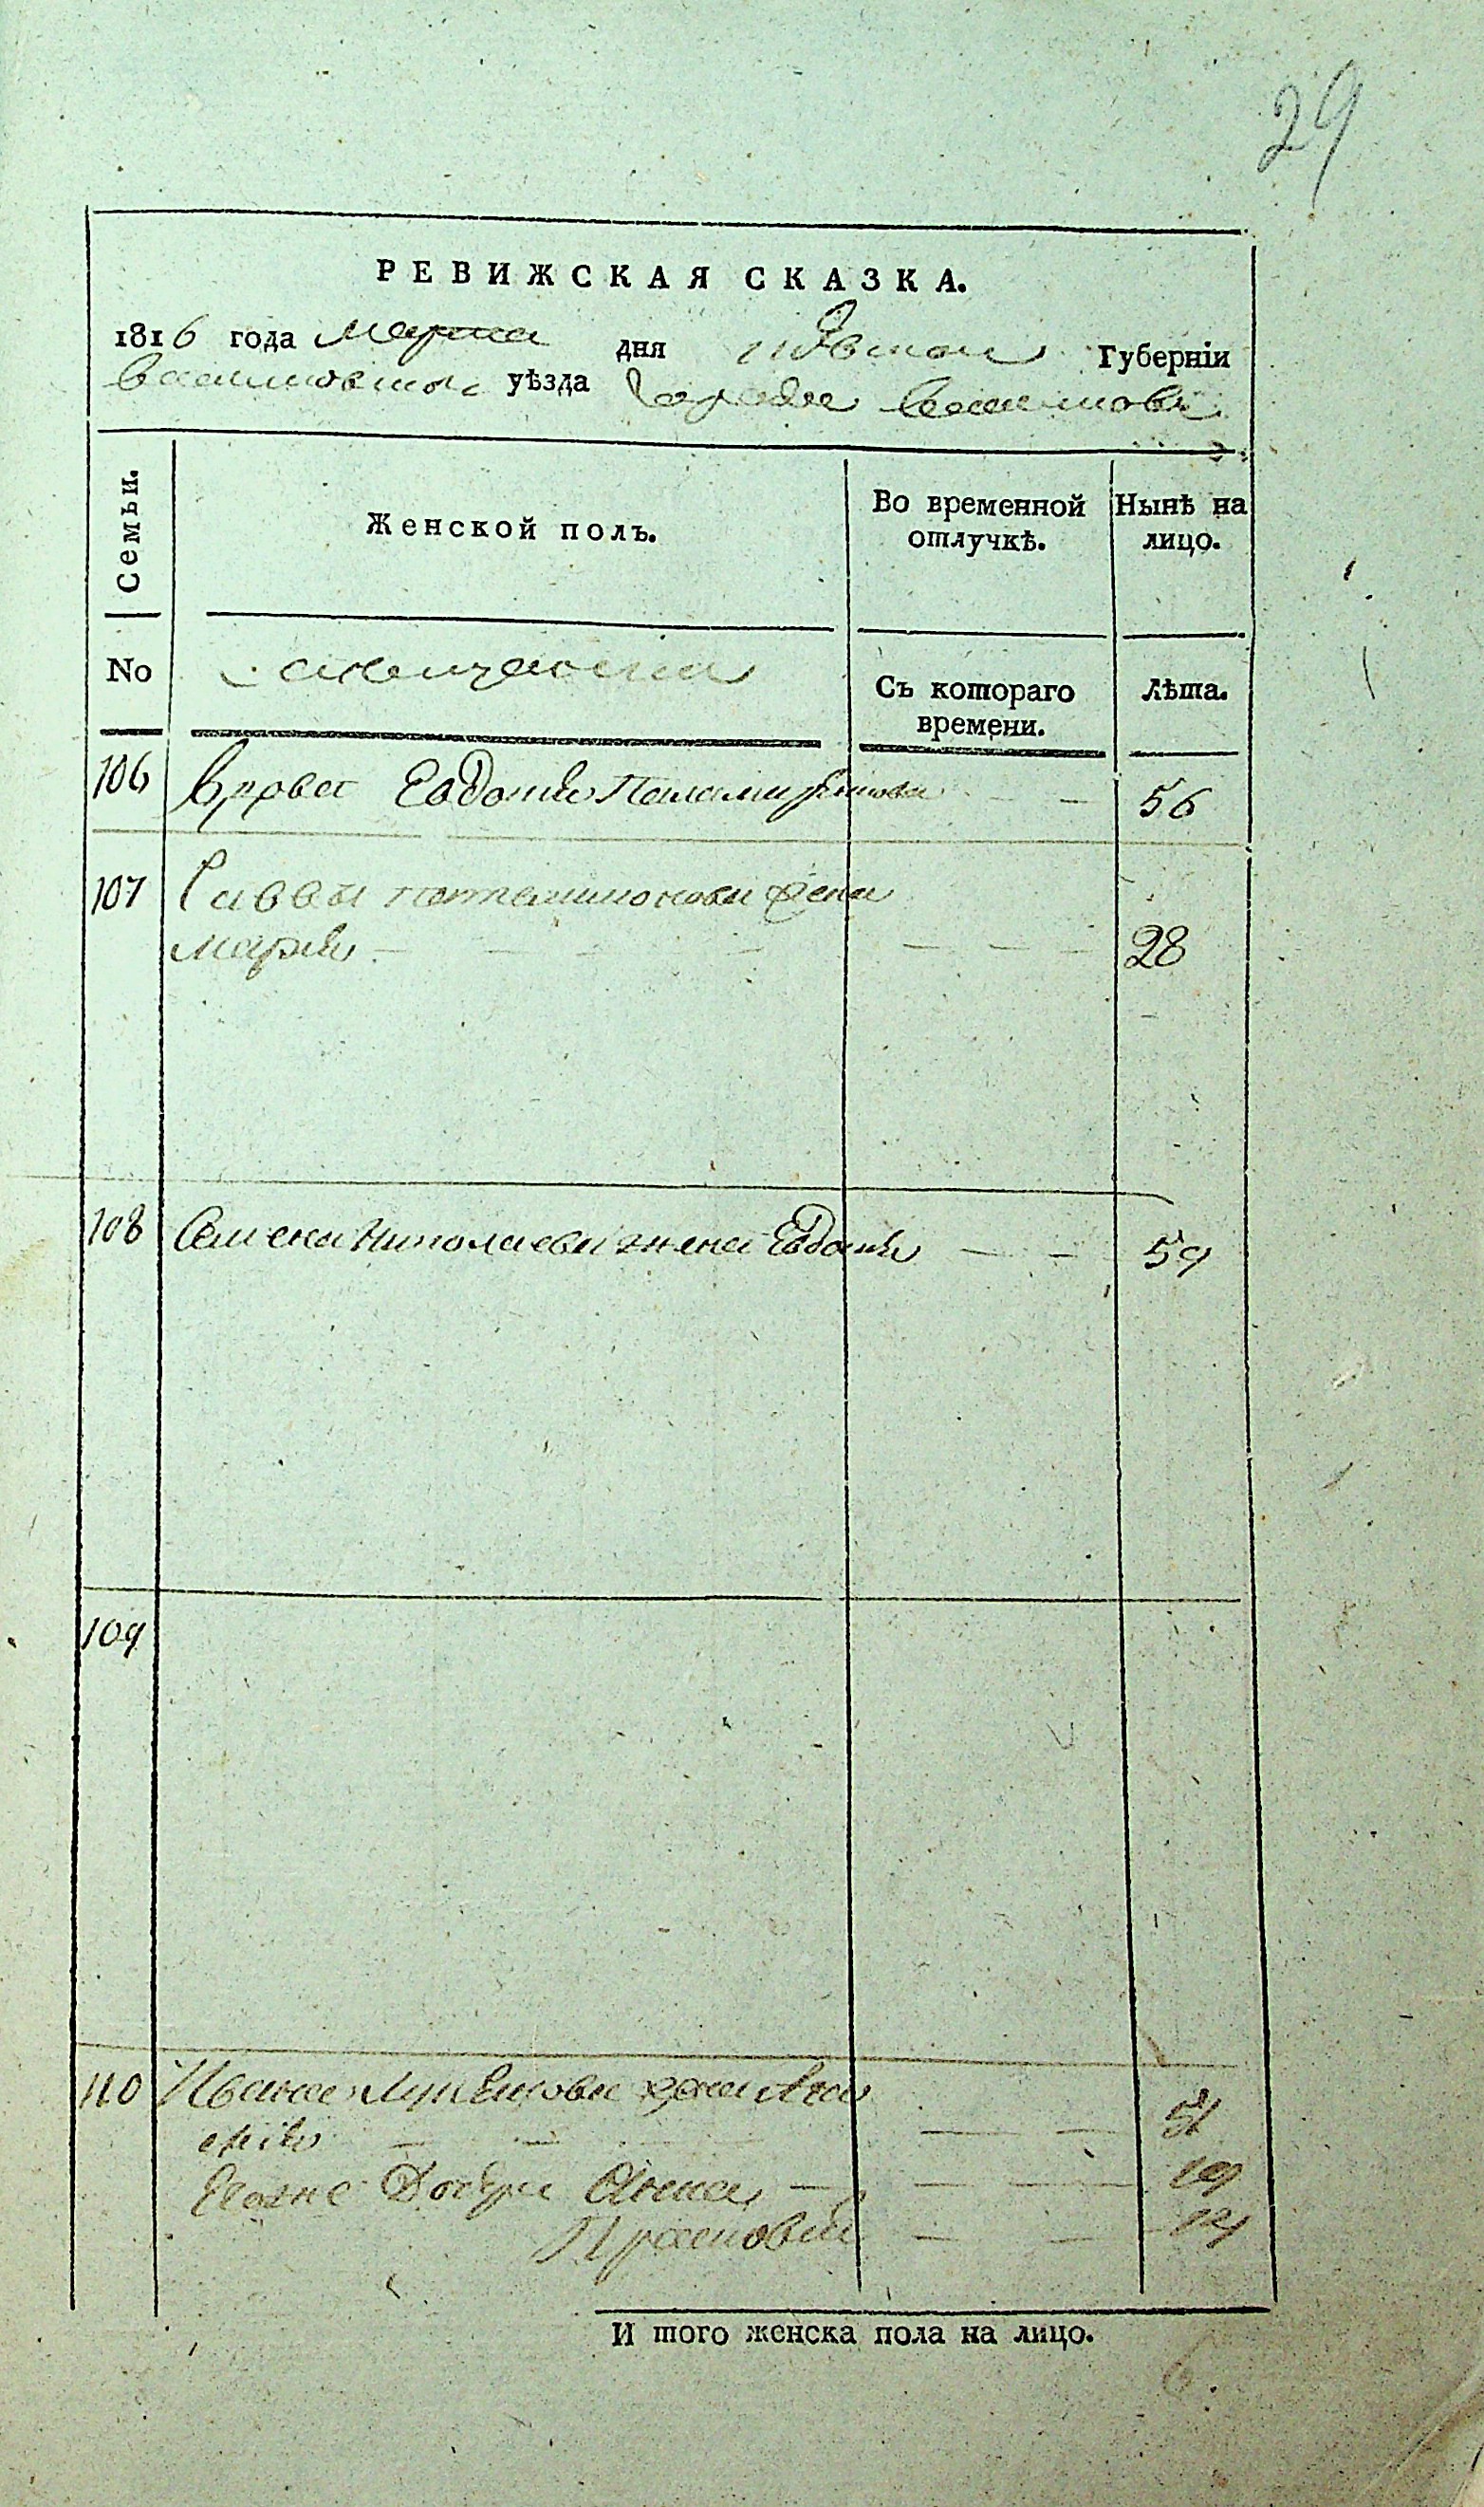 29
РЕВИЖСКАЯ СКАЗКА.
1816 года марта дня Губернїи
уѣзда города
Семьи.
Женской полъ.
Во временной отлучкѣ.
Нынѣ на лицо.
No
Съ котораго времени.
Лѣта.
106 Вдова Евдокия — — 56
107 Саввы жена
Мария — — — — — — 28
108 Семена Николаева жена Евдокия — — 59
109
110 Ивана жена Ага
фия — — — — — 51
Его же дочери Анна — — — 19
Прасковья — — — 14
И того женска пола на лицо.
6.